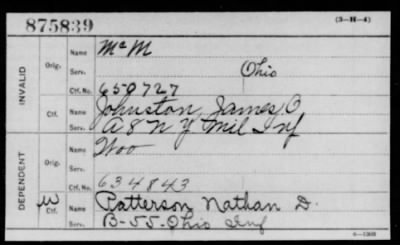 875839 (3-H-4)
INVALID
Orig. Name McM
Serv. Ohio
Ctf. No. 650727
Ctf. Name Johnston, James O
Serv. A 8 N Y Mil Inf
DEPENDENT
Orig. Name Woo
Serv.
Ctf. No. 634843
W Ctf. Name Patterson Nathan D.
Serv. B-55-Ohio Inf